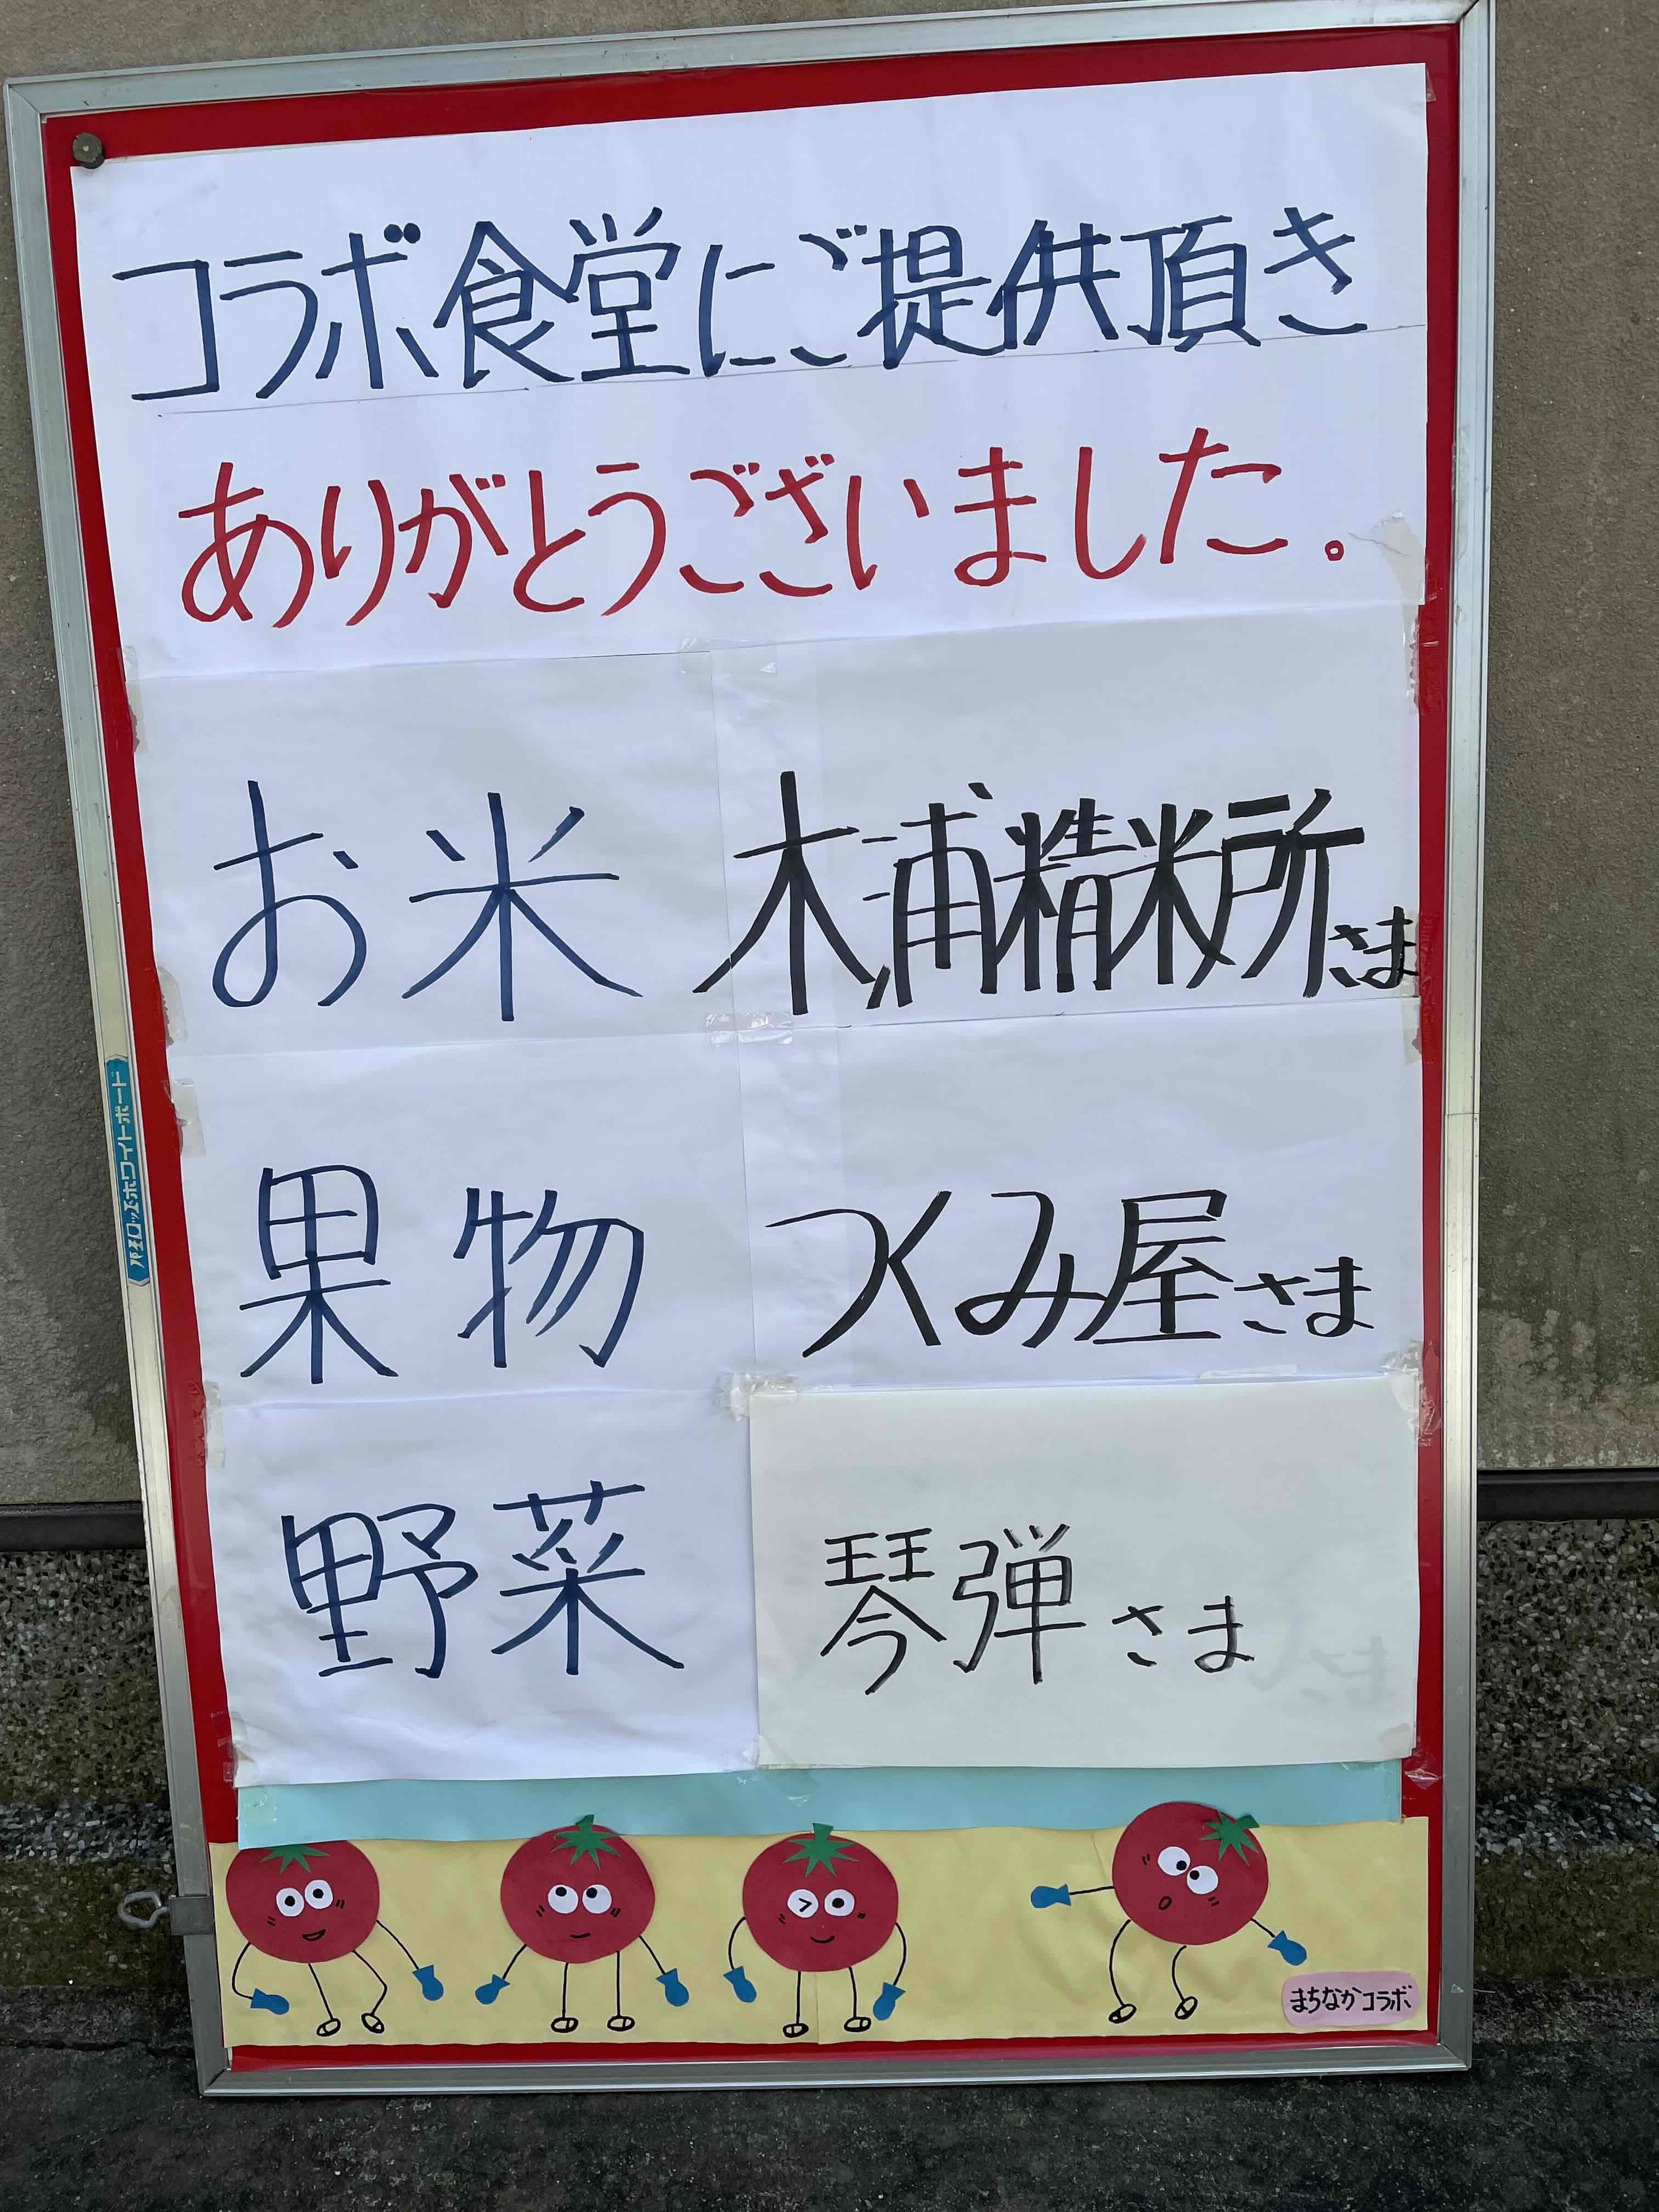 コラボ食堂にご提供頂き
ありがとうございました。
お米 木浦精米所さま
果物 つくみ屋さま
野菜 琴弾さま
まちなかコラボ
パイロットホワイトボード